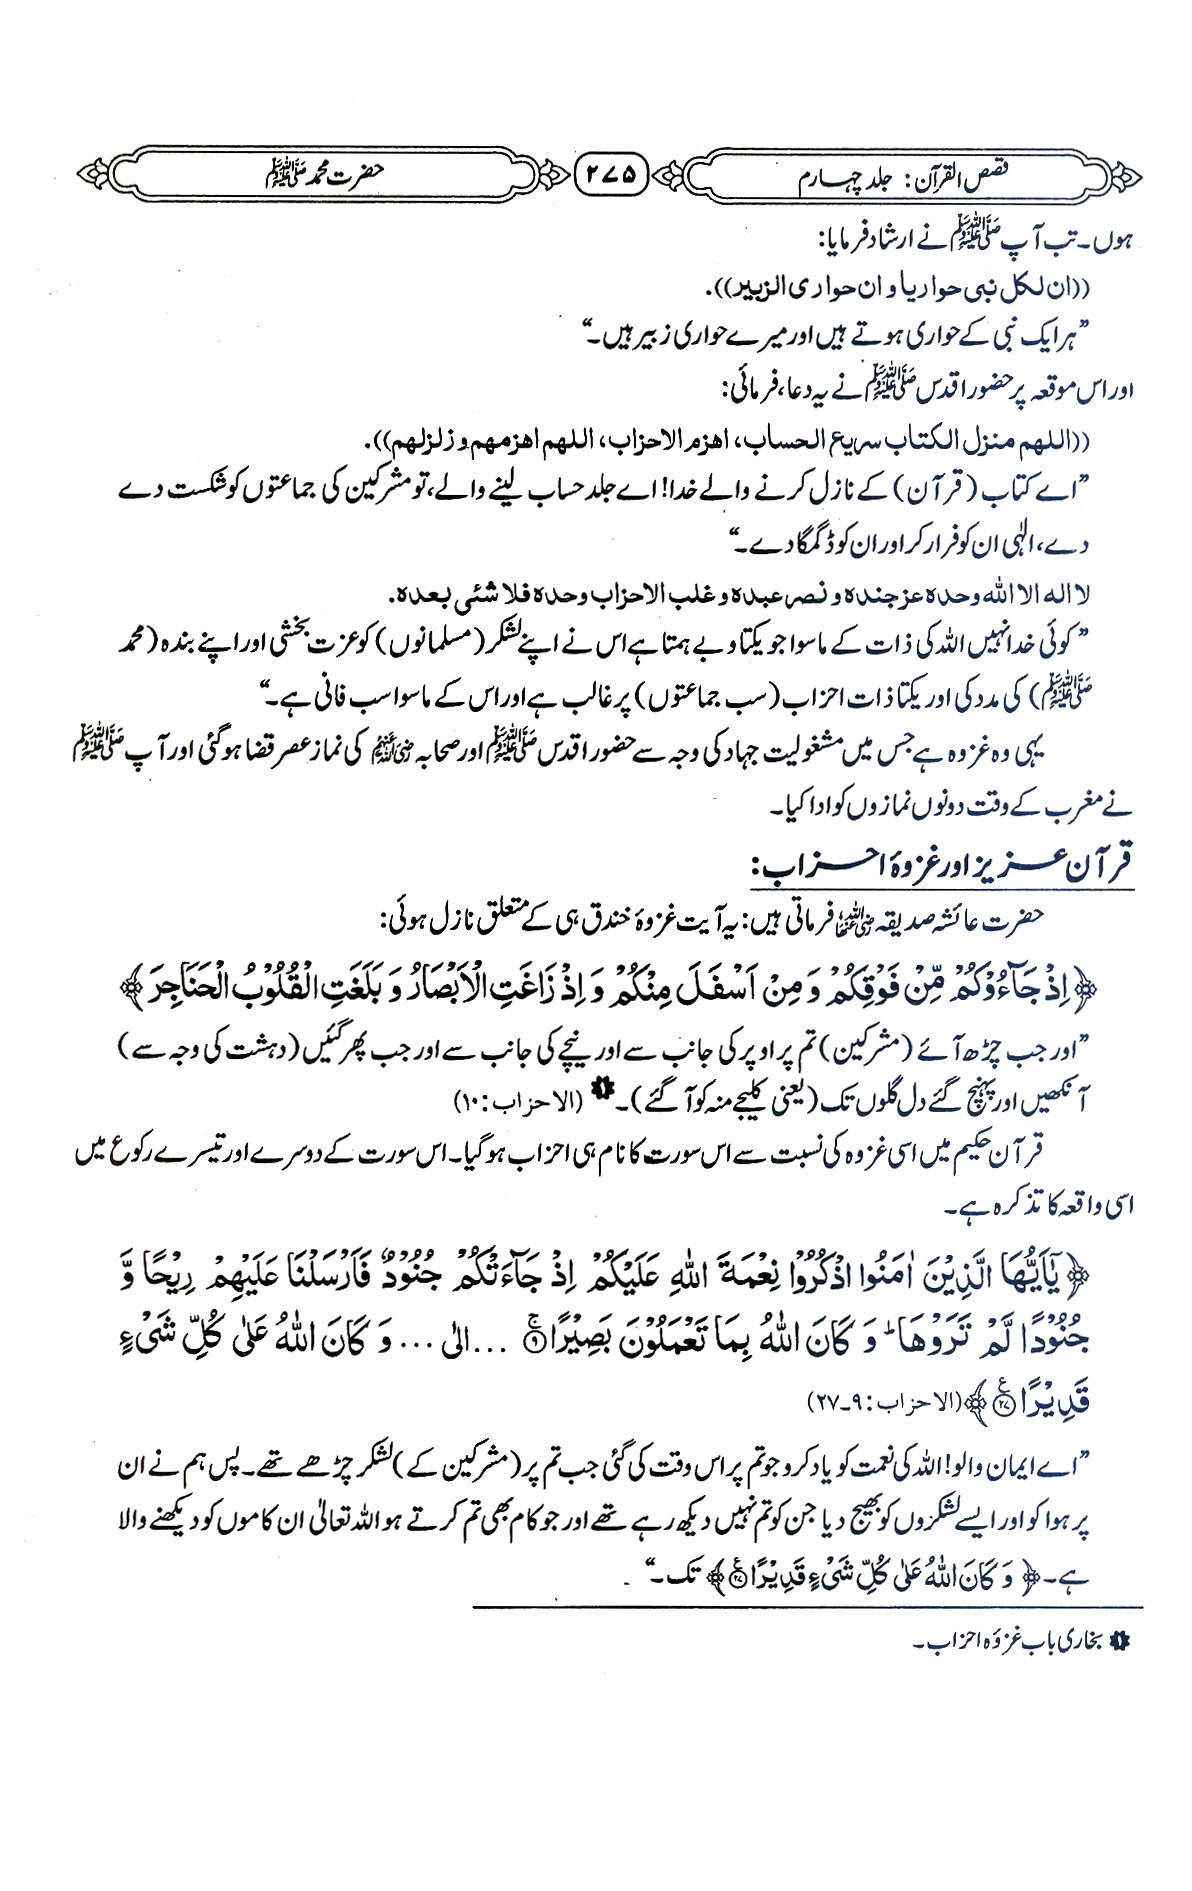 قصص القرآن: جلد چہارم
۲۷۵
حضرت محمد ﷺ
ہوں۔ تب آپ ﷺ نے ارشاد فرمایا:
((ان لکل نبی حواریا و ان حواری الزبیر)).
”ہر ایک نبی کے حواری ہوتے ہیں اور میرے حواری زبیر ہیں۔“
اور اس موقعہ پر حضور اقدس ﷺ نے یہ دعاء فرمائی:
((اللهم منزل الکتاب سریع الحساب، اهزم الاحزاب، اللهم اهزمهم و زلزلهم)).
”اے کتاب (قرآن) کے نازل کرنے والے خدا! اے جلد حساب لینے والے، تو مشرکین کی جماعتوں کو شکست دے
دے، الٰہی ان کو فرار کر اور ان کو ڈگمگا دے۔“
لا اله الا الله وحده عز جنده و نصر عبده و غلب الاحزاب وحده فلا شئی بعده.
”کوئی خدا نہیں اللہ کی ذات کے ماسوا جو یکتا و بے ہمتا ہے اس نے اپنے لشکر (مسلمانوں) کو عزت بخشی اور اپنے بندہ (محمد
ﷺ) کی مدد کی اور یکتا ذات احزاب (سب جماعتوں) پر غالب ہے اور اس کے ماسوا سب فانی ہے۔“
یہی وہ غزوہ ہے جس میں مشغولیت جہاد کی وجہ سے حضور اقدس ﷺ اور صحابہ رضی اللہ عنہم کی نماز عصر قضا ہو گئی اور آپ ﷺ
نے مغرب کے وقت دونوں نمازوں کو ادا کیا۔
قرآن عزیز اور غزوۂ احزاب:
حضرت عائشہ صدیقہ رضی اللہ عنہا فرماتی ہیں: یہ آیت غزوۂ خندق ہی کے متعلق نازل ہوئی:
﴿اِذْ جَآءُوْكُمْ مِّنْ فَوْقِكُمْ وَ مِنْ اَسْفَلَ مِنْكُمْ وَ اِذْ زَاغَتِ الْاَبْصَارُ وَ بَلَغَتِ الْقُلُوْبُ الْحَنَاجِرَ﴾
”اور جب چڑھ آئے (مشرکین) تم پر اوپر کی جانب سے اور نیچے کی جانب سے اور جب پھر گئیں (دہشت کی وجہ سے)
آنکھیں اور پہنچ گئے دل گلوں تک (یعنی کلیجے منہ کو آ گئے)۔ ۱ (الاحزاب: ۱۰)
قرآن حکیم میں اسی غزوہ کی نسبت سے اس سورت کا نام ہی احزاب ہو گیا۔ اس سورت کے دوسرے اور تیسرے رکوع میں
اسی واقعہ کا تذکرہ ہے۔
﴿يٰۤاَيُّهَا الَّذِيْنَ اٰمَنُوا اذْكُرُوْا نِعْمَةَ اللّٰهِ عَلَيْكُمْ اِذْ جَآءَتْكُمْ جُنُوْدٌ فَاَرْسَلْنَا عَلَيْهِمْ رِيْحًا وَّ
جُنُوْدًا لَّمْ تَرَوْهَا ؕ وَ كَانَ اللّٰهُ بِمَا تَعْمَلُوْنَ بَصِيْرًا ۚ ۹ ... الیٰ ... وَ كَانَ اللّٰهُ عَلٰى كُلِّ شَىْءٍ
قَدِيْرًا ۠ ۲۷﴾ (الاحزاب: ۹۔۲۷)
”اے ایمان والو! اللہ کی نعمت کو یاد کرو جو تم پر اس وقت کی گئی جب تم پر (مشرکین کے) لشکر چڑھے تھے۔ پس ہم نے ان
پر ہوا کو اور ایسے لشکروں کو بھیج دیا جن کو تم نہیں دیکھ رہے تھے اور جو کام بھی تم کرتے ہو اللہ تعالیٰ ان کاموں کو دیکھنے والا
ہے۔ ﴿وَ كَانَ اللّٰهُ عَلٰى كُلِّ شَىْءٍ قَدِيْرًا ۠ ۲۷﴾ تک۔“
۱ بخاری باب غزوہ احزاب۔